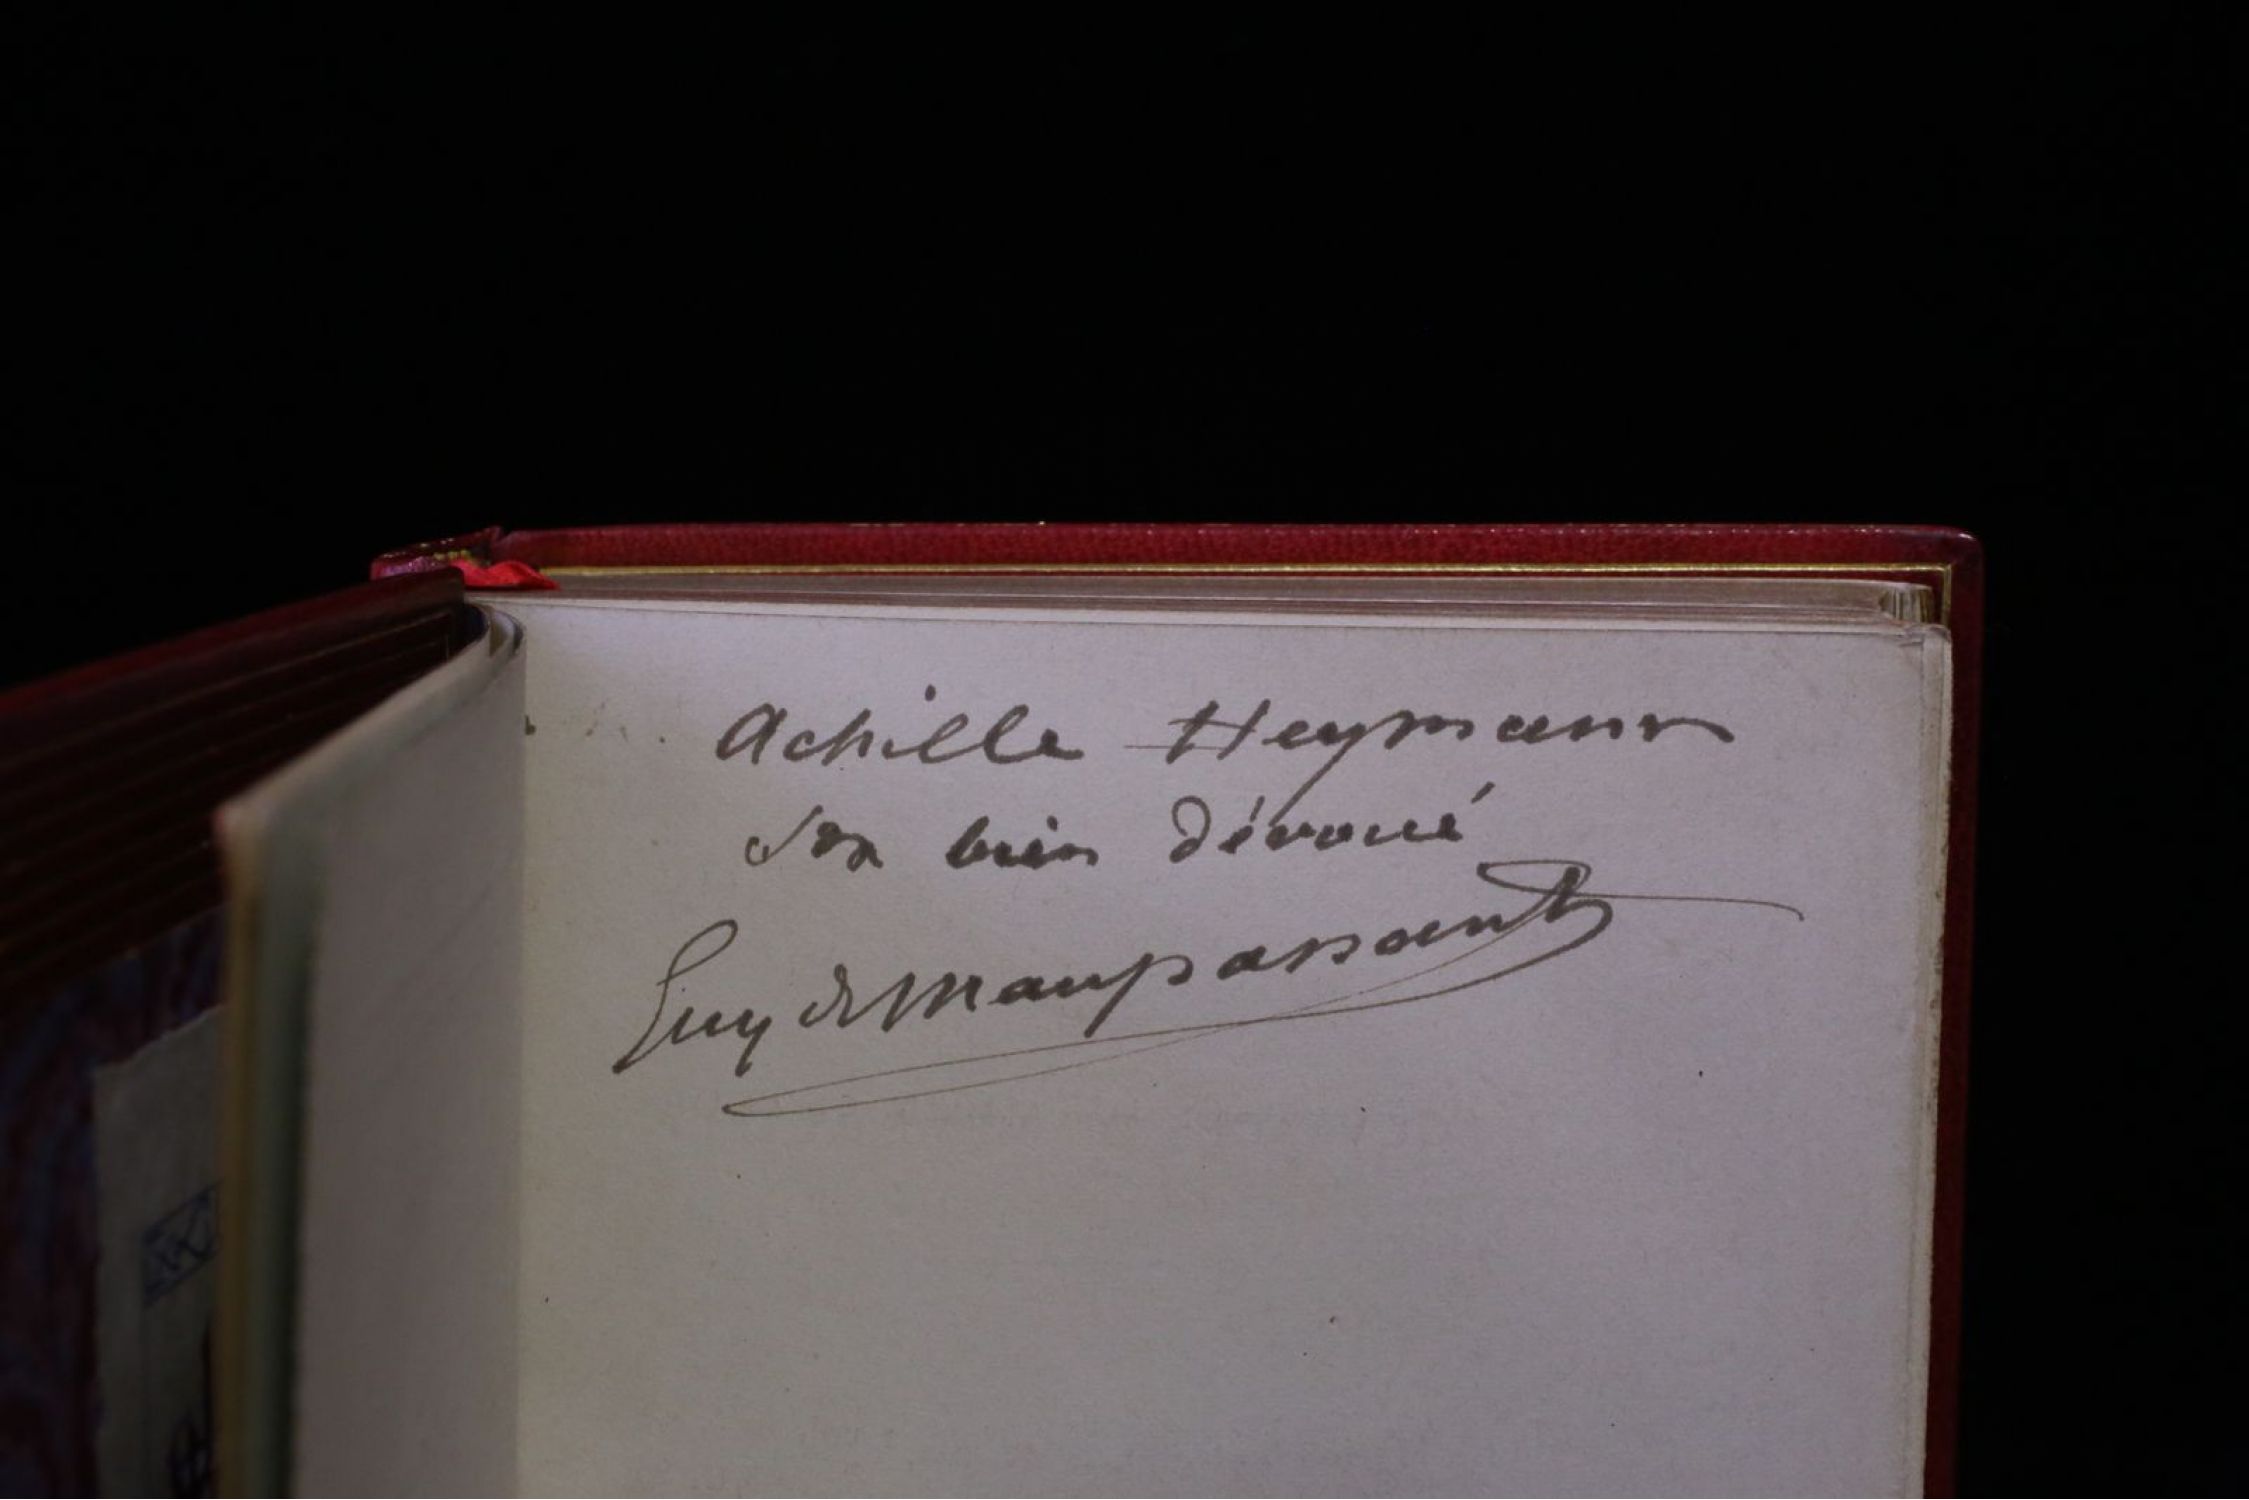 Achille Heymann
Son bien dévoué
Guy de Maupassant